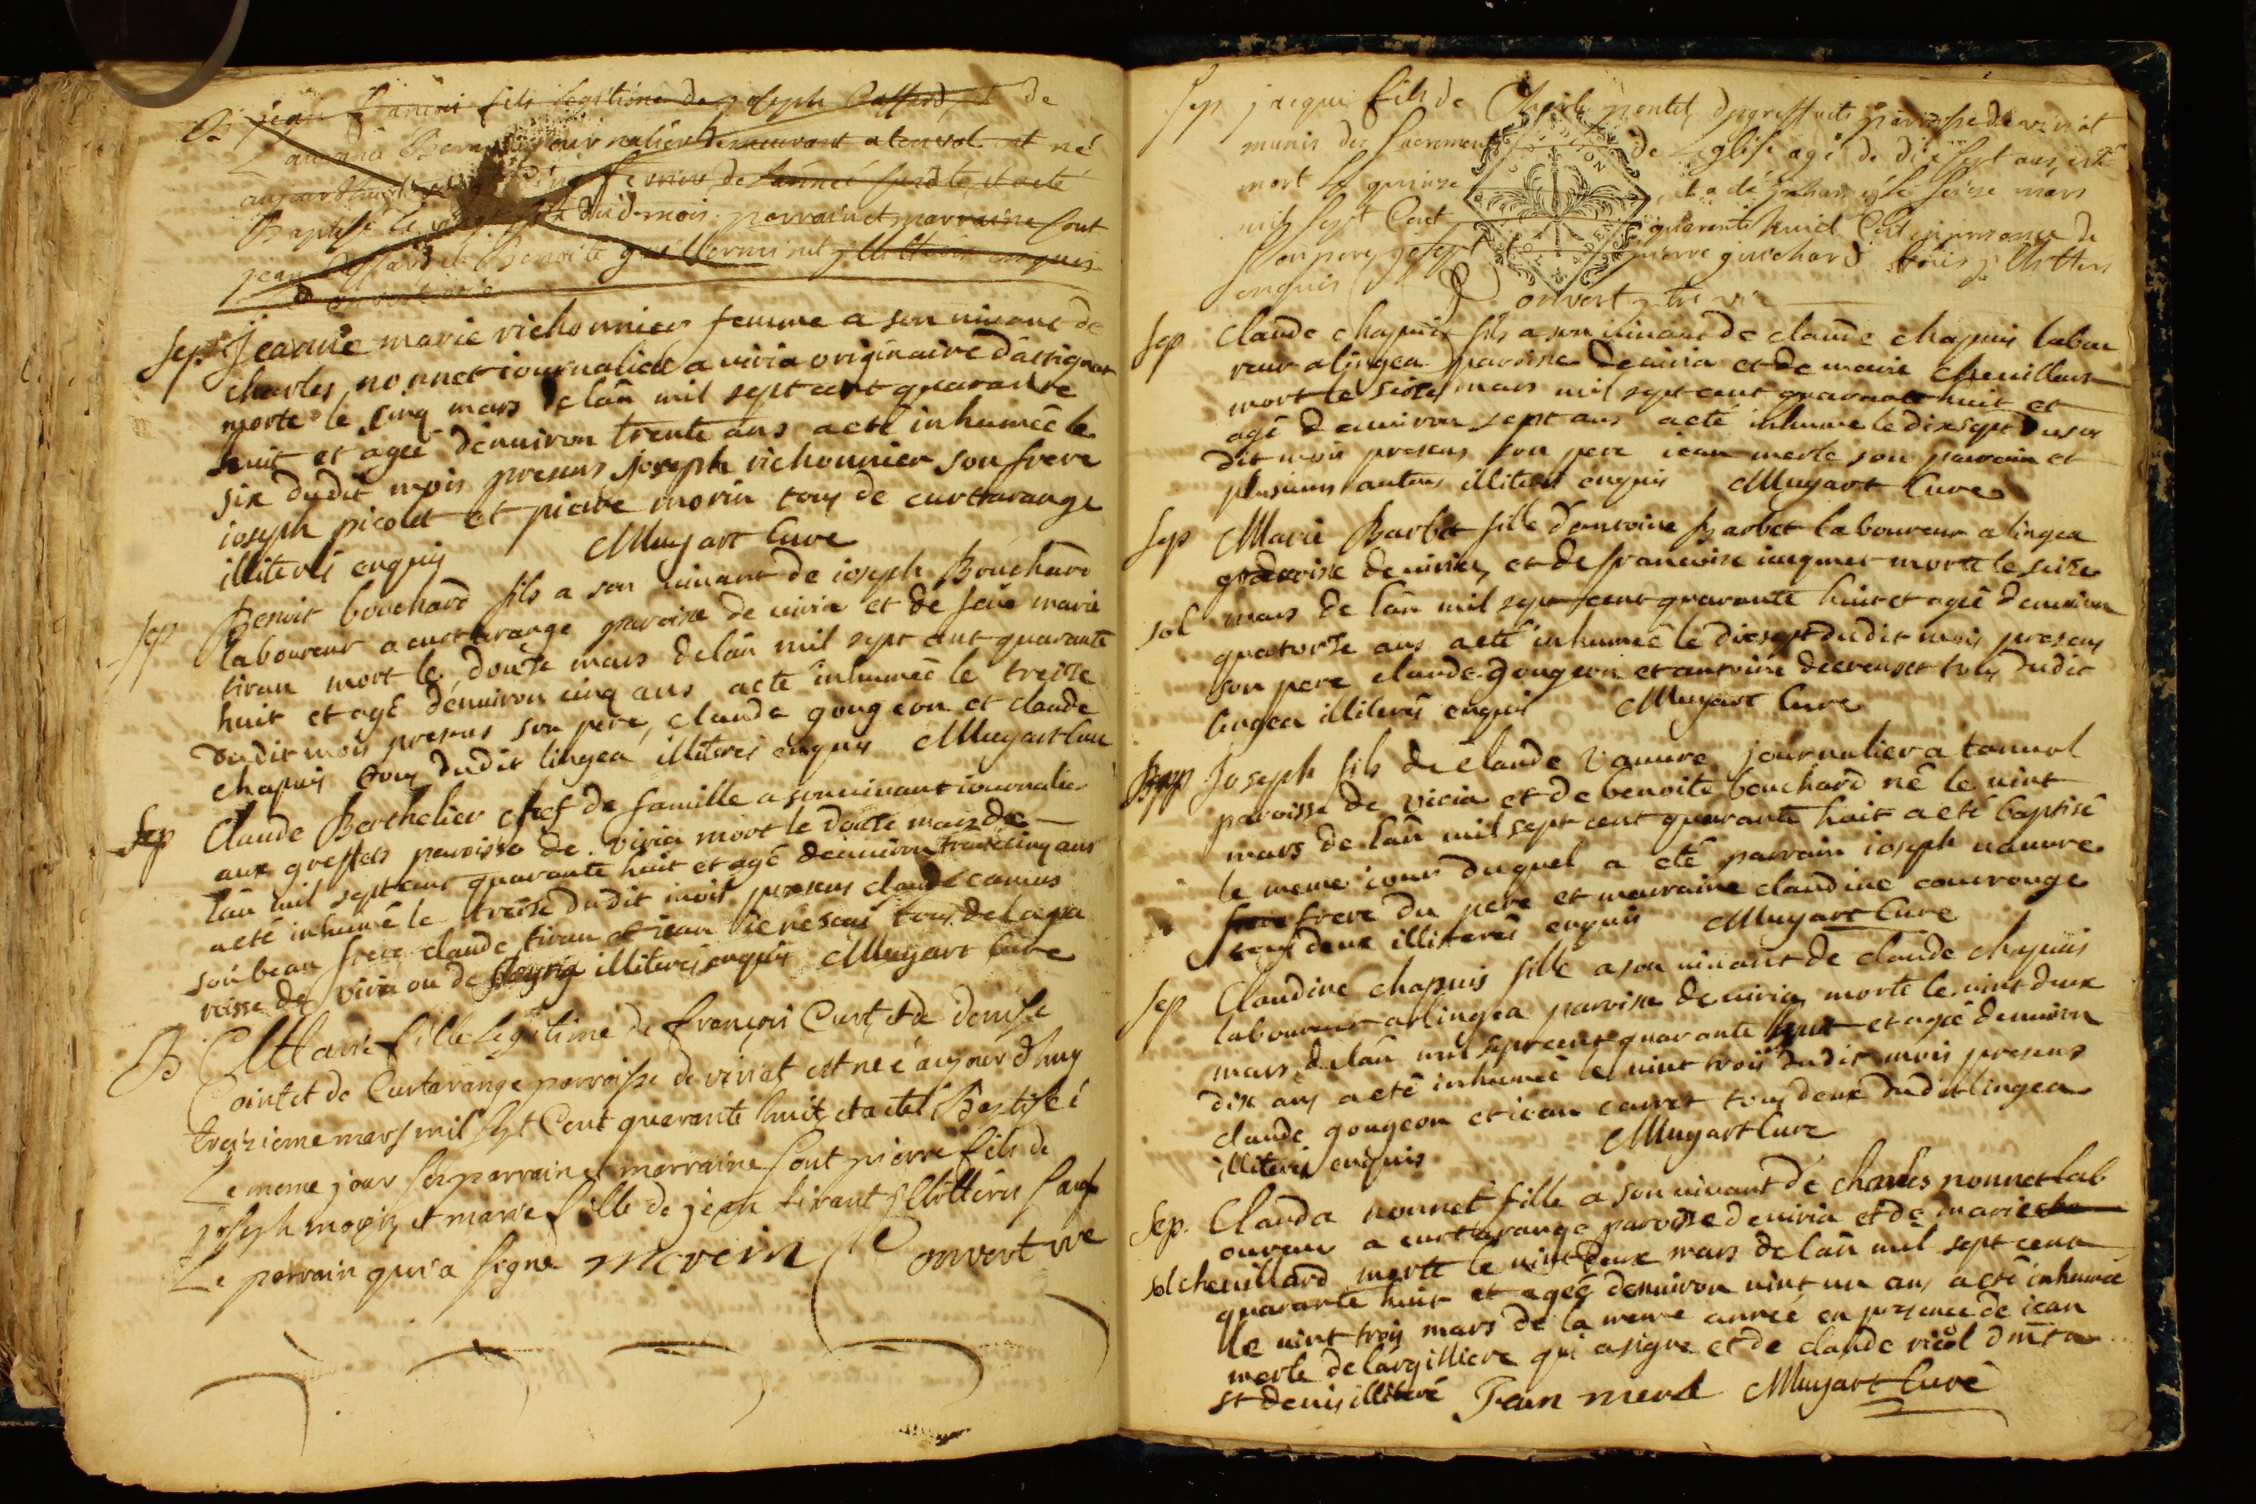 B jean francois fils legitime de joseph Caffard et de
journalier demeurant a tanvol est né
aujourdhuy fevrier de l'année susdite et a eté
Baptisé le dud. mois. parrain et marraine sont
jean Caffard et Benoite guillerminet illitteres enquis
sep. Jeanne marie richonnier femme a son vivant de
charles nonnet iournalier a viria originaire d'attignat
morte le cinq mars de lân mil sept cent quarante
huit et agée denuiron trente ans a eté inhumée le
six dudit mois presens joseph richonnier son frere
ioseph picolet et piere morin tous de curtarange
illiterés enquis Muyart Curé
sep Benoit bouchard fils a son uiuant de ioseph Bouchard
laboureur a curtarange paroisse de uiria et de feüe marie
tiran mort le douze mars de lân mil sept cent quarante
huit et agé denuiron cinq ans a eté inhumée le treize
dudit mois presens son pere, claude gougeon et claude
chapuis tous dudit lingea illiterés enquis Muyart Curé
sep Claude Berthelier chef de famille a son uiuant iournalier
aux greffets paroisse de viria mort le douze mars de
lân mil sept cent quarante huit et agé denuiron trante cinq ans
a eté inhumé le treize dudit mois presens claude camus
son beau frere claude tiran et iean tous de la pa
roisse de viria ou de fleyria illiterés enquis Muyart Curé
B Marie fille legitime de françois Curt et de denise
Cointet de Curtarange parroisse de viriat est neé aujourdhuy
treizieme mars mil sept Cent quarante huit et a eté Baptiseé
Le meme jour ses parrain et marraine sont pierre fils de
joseph morin et marie fille de jean tirant illitteres sauf
Le parrain qui a signé morein Convert vre
sep jacque fils de Charle pontet desgreffets parroisse de viriat
munis des sacrements de Leglise agé de dix sept ans est
mort le quinze et a eté inhumé le seize mars
mil sept Cent quarante huict en presence de
son pere joseph pierre guichard illitteres
enquis Convert vre
sep Claude chapuis fils a son uiuant de claude chapuis labou
reur a lingea paroisse de uiria et de marie cheuillard
mort le seize mars mil sept cent quarante huit et
agé denuiron sept ans a eté inhumé le dix sept du su
dit mois presens son pere iean merle son parrain et
plusieurs autres illiterés enquis Muyart Curé
sep Marie Barbet fille d'antoine Barbet laboureur a lingea
paroisse de uiria, et de francoise iuquiner morte le seize
sol mars de lân mil sept cent quarante huit et agée denuiron
quatorze ans a eté inhumée le dixsept dudit mois presens
son pere claude gougeon et antoine decreuset tous dudit
lingea illiterés enquis Muyart Curé
Bapp Joseph fils de claude Vauure journalier a tanuol
paroisse de viria et de benoite bouchard né le uint
mars de lân mil sept cent quarante huit a eté baptisé
le meme iour duquel a eté parrain ioseph uauure
frere du pere et mauraine claudine courrouge
tous deux illiterés enquis Muyart Curé
sep Claudine chapuis fille a son uiuant de claude chapuis
laboureur a lingea paroisse de uiria, morte le uint deux
mars de lân mil sept cent quarante huit et agée denuiron
dix ans a eté inhumée le uint trois dudit mois presens
claude gougeon et iean couret tous deux dudit lingea
illiterés enquis Muyart Curé
sep. Clauda nonnet fille a son uiuant de charles nonnet lab
oureur a curtarange paroisse de uiria et de marie che
sol cheuillard morte le uint deux mars de lân mil sept cent
quarante huit et agée denuiron uint un ans a eté inhumée
le uint trois mars de la meme année en presence de iean
merle de largilliere qui a signe et de claude ricol dmt a
st denis illiteré Jean merl Muyart Curé